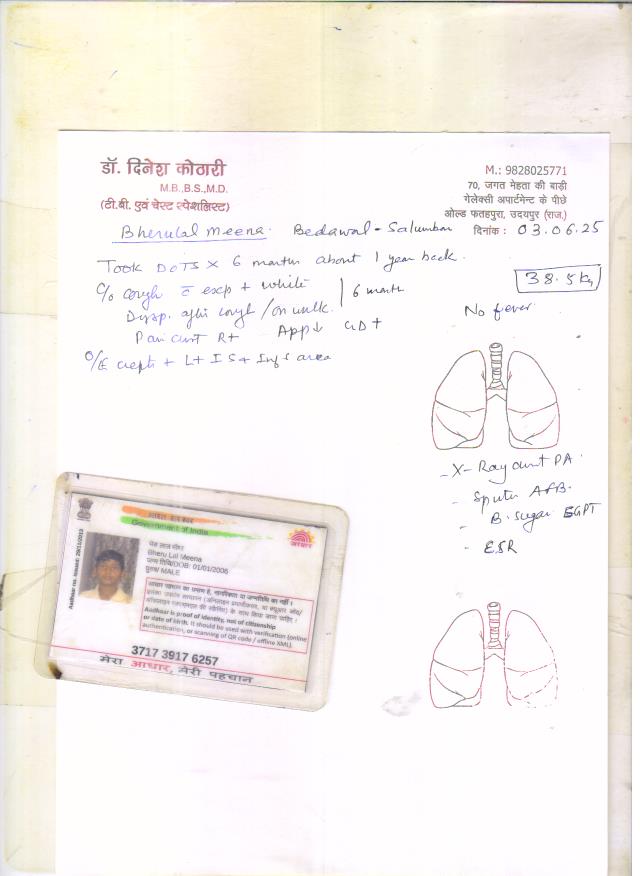 डॉ. दिनेश कोठारी
M.B.,B.S.,M.D.
(टी.बी. एवं चेस्ट स्पेशलिस्ट)
M.: 9828025771
70, जगत मेहता की बाड़ी
गेलेक्सी अपार्टमेन्ट के पीछे
ओल्ड फतहपुरा, उदयपुर (राज.)
दिनांक : 03.06.25
Bherulal Meena. Bedawal - Salumbar
Took DOTS X 6 months about 1 year back.
38.5 kg
C/o cough c exp + white
6 month
No fever
Dysp. after cough / on walk.
R+ App↓
O/E crepts + L+ IS+ Infs area
- X-Ray chest PA
- Sputum AFB.
- B. Sugar SGPT
- ESR
भारत सरकार
Government of India
Aadhaar no. issued: 29/11/2013
भेरू लाल मीणा
Bheru Lal Meena
जन्म तिथि/DOB: 01/01/2006
पुरुष/ MALE
आधार
आधार पहचान का प्रमाण है, नागरिकता या जन्मतिथि का नहीं ।
Aadhaar is proof of identity, not of citizenship
or date of birth. It should be used with verification (online
authentication, or scanning of QR code / offline XML).
3717 3917 6257
मेरा आधार, मेरी पहचान